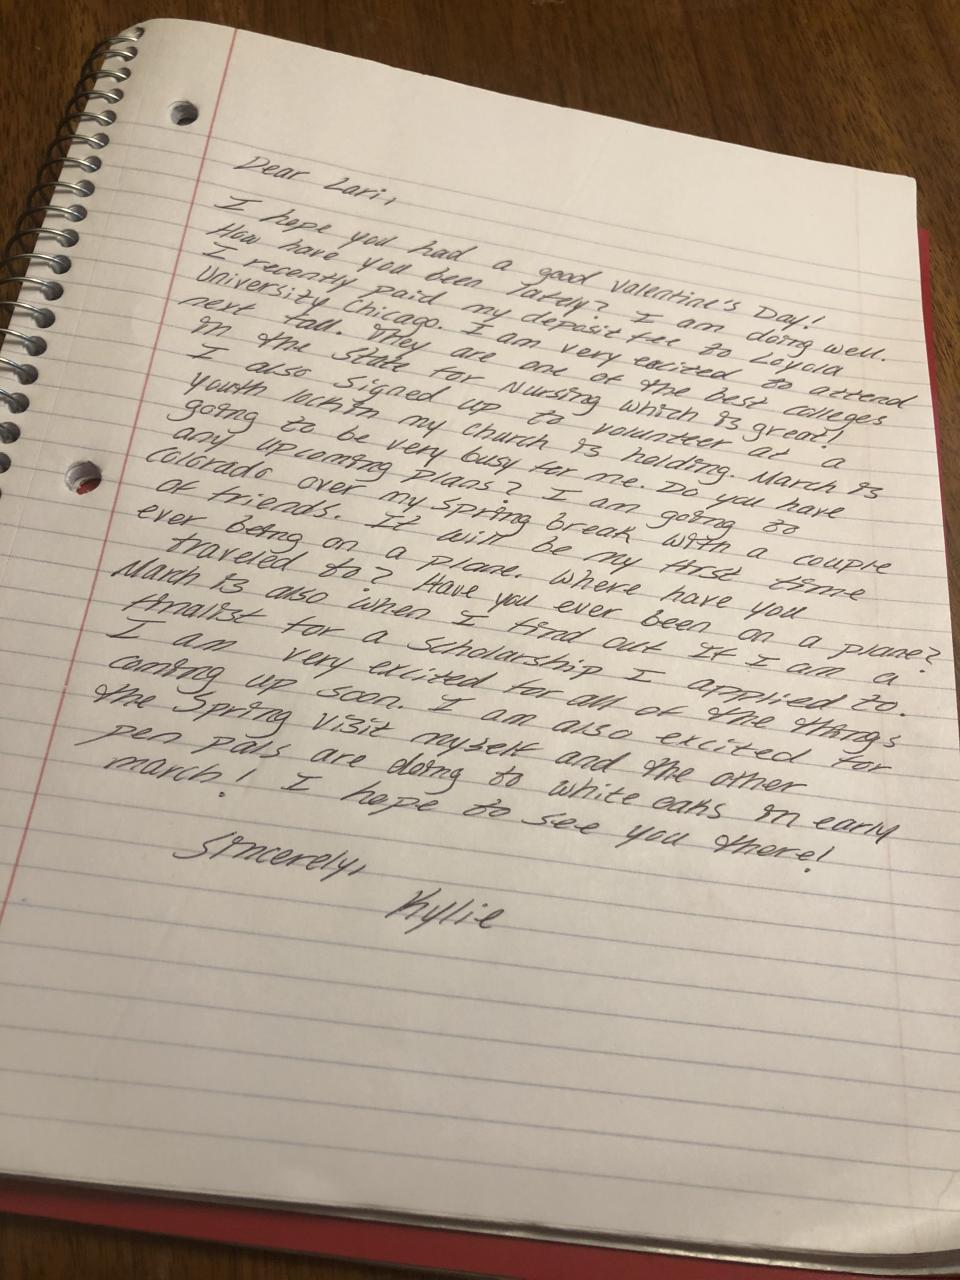 Dear Lari,
I hope you had a good Valentine's Day!
How have you been lately? I am doing well.
I recently paid my deposit fee to Loyola
University Chicago. I am very excited to attend
next fall. They are one of the best colleges
in the state for Nursing which is great!
I also signed up to volunteer at a
youth lockin my church is holding. March is
going to be very busy for me. Do you have
any upcoming plans? I am going to
Colorado over my spring break with a couple
of friends. It will be my first time
ever being on a plane. Where have you
traveled to? Have you ever been on a plane?
March is also when I find out if I am a
finalist for a scholarship I applied to.
I am very excited for all of the things
coming up soon. I am also excited for
the Spring visit myself and the other
pen pals are doing to white oaks in early
march! I hope to see you there!
Sincerely,
Kylie